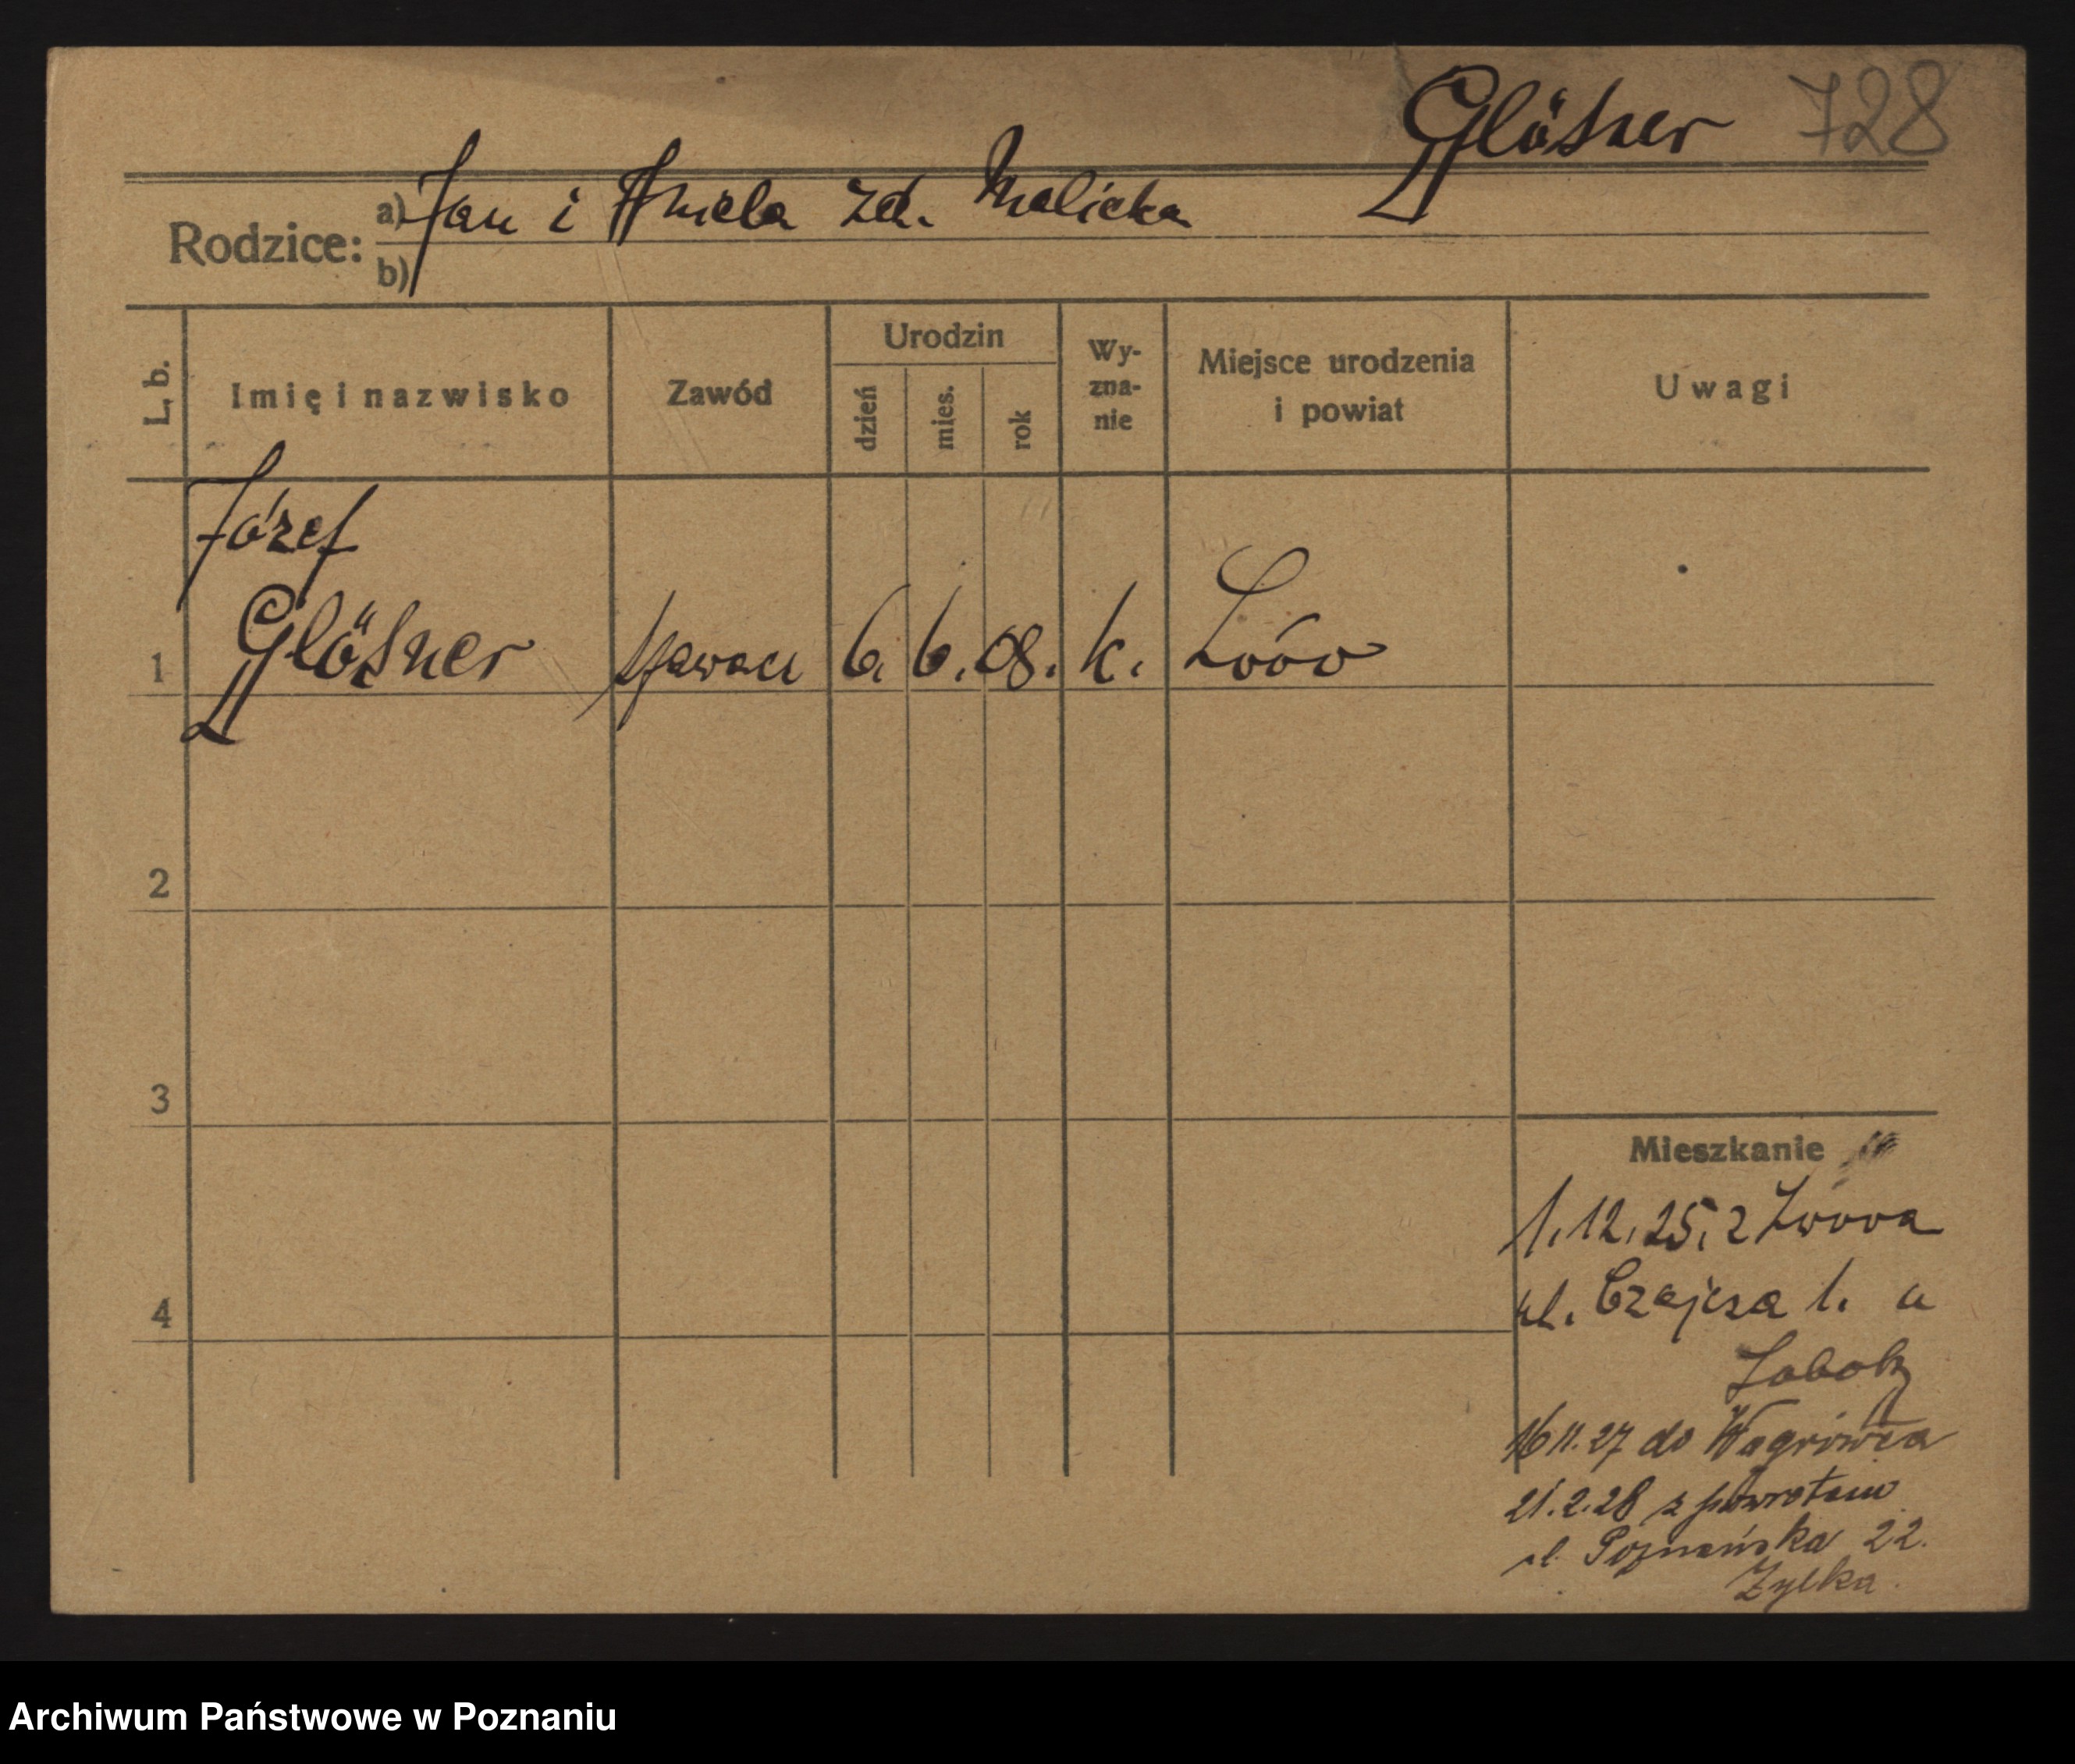 Glösner 728
Rodzice: a) Jan i Aniela zd. Malicka
b)
L, b. Imię i nazwisko Zawód Urodzin dzień mies. rok Wy-zna-nie Miejsce urodzenia i powiat Uwagi
Józef
1 Glösner 6. 6. 08. k. Lwów
2
3
Mieszkanie
1.12.25. z Lwowa
4 ul. 1. u
16 11. 27 do Wągrówca
21.2.28 z powrotem
ul. Poznańska 22.
Zylka.
Archiwum Państwowe w Poznaniu